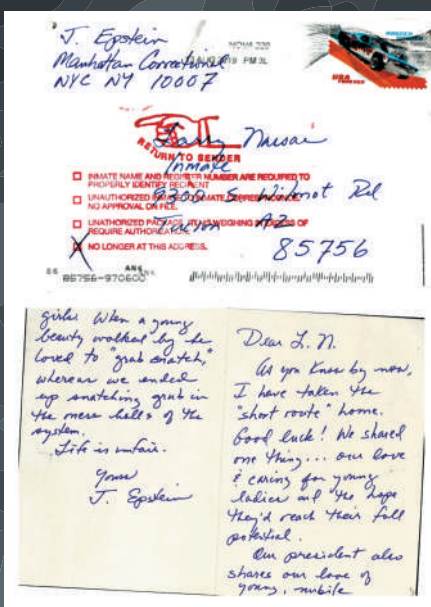 J. Epstein
Manhattan Correctional
NYC NY 10007
AUG 2019 PM 3L
USA
FOREVER
Larry Nassar
Inmate
9300 S. Wilmot Rd
Tucson AZ
85756
RETURN TO SENDER
INMATE NAME AND REGISTER NUMBER ARE REQUIRED TO
PROPERLY IDENTIFY RECIPIENT
UNAUTHORIZED
NO APPROVAL ON FILE.
UNAUTHORIZED WEIGHING
REQUIRE AUTHORIZATION
NO LONGER AT THIS ADDRESS.
85756-970600
Dear L. N.
As you know by now,
I have taken the
"short route" home.
Good luck! We shared
one thing... our love
& caring for young
ladies and the hope
they'd reach their full
potential.
Our president also
shares our love of
young, nubile
girls. When a young
beauty walked by he
loved to "grab snatch,"
whereas we ended
up snatching grub in
the mess halls of the
system.
Life is unfair.
Yours
J. Epstein